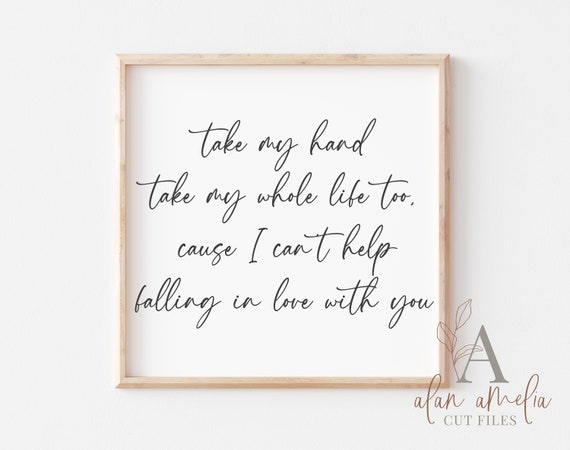 take my hand
take my whole life too,
cause I can't help
falling in love with you
A
alan amelia
CUT FILES